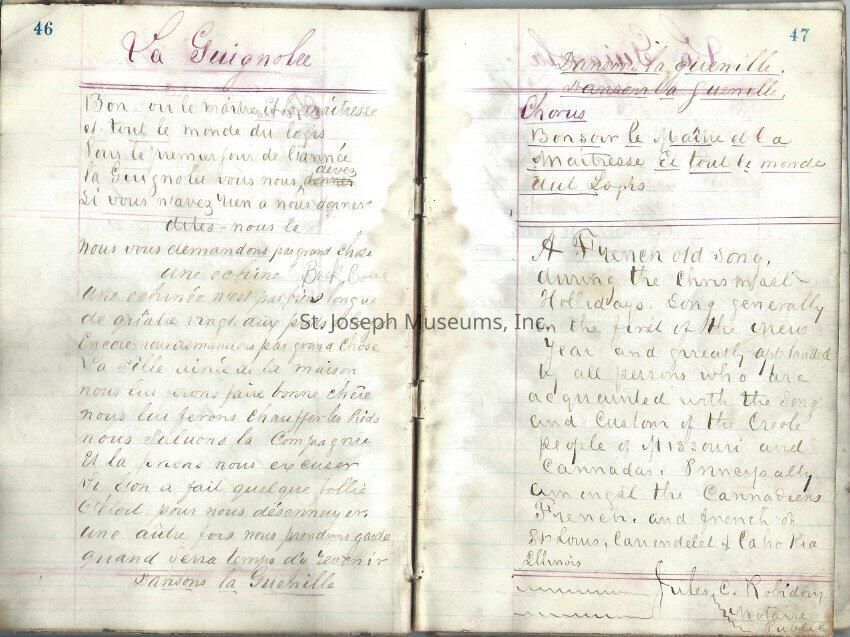 46
La Guignolee
Bon soir le maitre et la maitresse
et tout le monde du logis
Pour le premier jour de l'année
La Guignolee vous nous devez
Si vous n'avez rien a nous donner
dites-nous le
nous vous demandons pas grand chose
une echine Back Bone
une echinée n'est pas bien longue
de quatre vingt dix pieds
Encore nous demandons pas grand chose
La fille ainée de la maison
nous lui ferons faire bonne chère
nous lui ferons chauffer les Pieds
nous Saluons la Compagnie
Et la prions nous excuser
Si l'on a fait quelque follie
C'étoit pour nous désennuyer
une aûtre fois nous prendrons garde
quand Serra temps d'y revenir
Dansons la Guenille
47
Dansons la guenille.
Dansons la Guenille,
Chorus
Bonsoir le Maître et la
Maitresse et tout le monde
dut Logis
A French old Song,
during the Chrismast
Hollidays. Song generally
on the first of the new
Year and greatly applauded
by all persons who are
acquainted with the Song
and Custom of the Creole
people of Missouri and
Cannadas. Principally
amongst the Cannadiens
French. and french of
St Louis, Carrondelet & Caho Kia
Illinois
Jules, C. Robidoux
Notarie
Public
St. Joseph Museums, Inc.